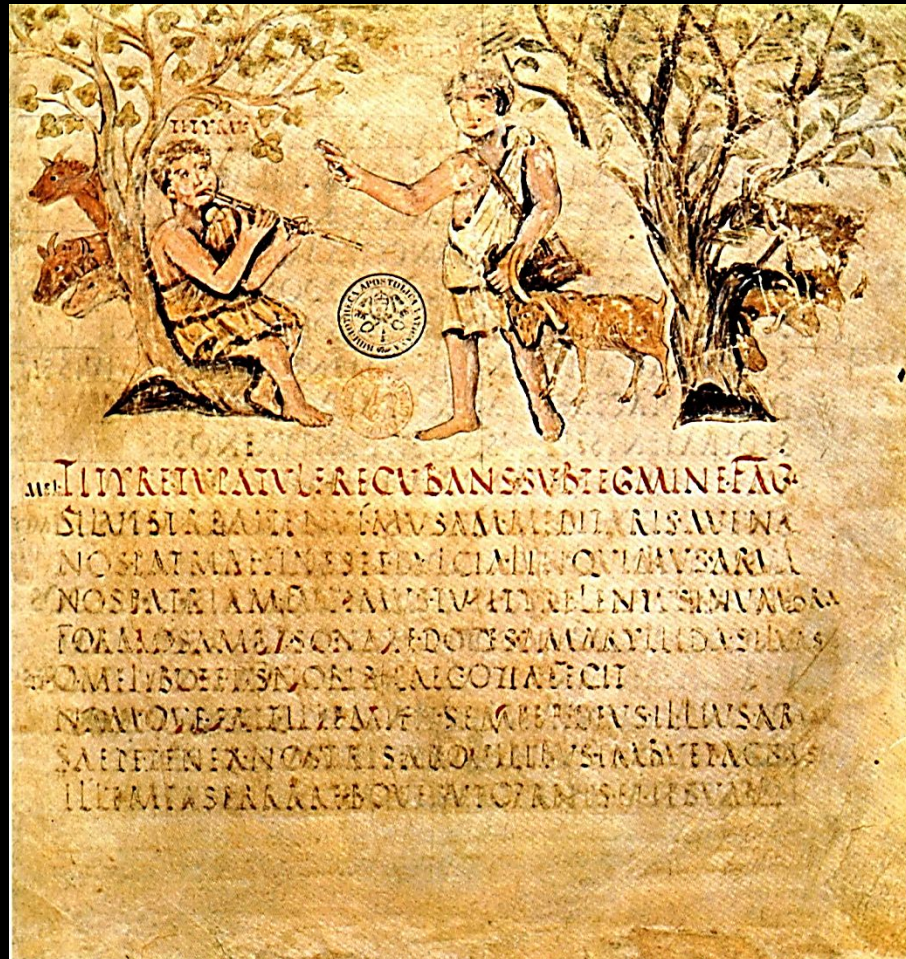 TITYRUS
BIBLIOTHECA APOSTOLICA VATICANA
MEL TITYRETVPATVLAERECVBANSSVBTEGMINEFAG
SILVESTREMTENVIMVSAMMEDITARISAVENA
NOSPATRIAEFINESETDVLCIALINQVIMVSARVA
NOSPATRIAMFVGIMVSTVTITYRELENTVSINVMBRA
FORMOSAMRESONAREDOCESAMARYLLIDASILVAS
OMELIBOEEDEVSNOBISHAECOTIAFECIT
NAMQVEERITILLEMIHISEMPERDEVSILLIVSAR
SAEPETENERNOSTRISABOVILIBVSIMBVETAGNVS
ILLEMEASERRAREBOVESVTCERNISETIPSVM